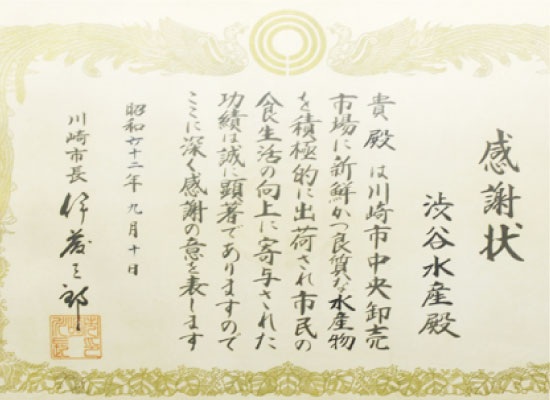 感謝状
渋谷水産殿
貴殿は川崎市中央卸売
市場に新鮮かつ良質な水産物
を積極的に出荷され市民の
食生活の向上に寄与された
功績は誠に顕著でありますので
ここに深く感謝の意を表します
昭和廿十二年九月十日
川崎市長 伊藤三郎